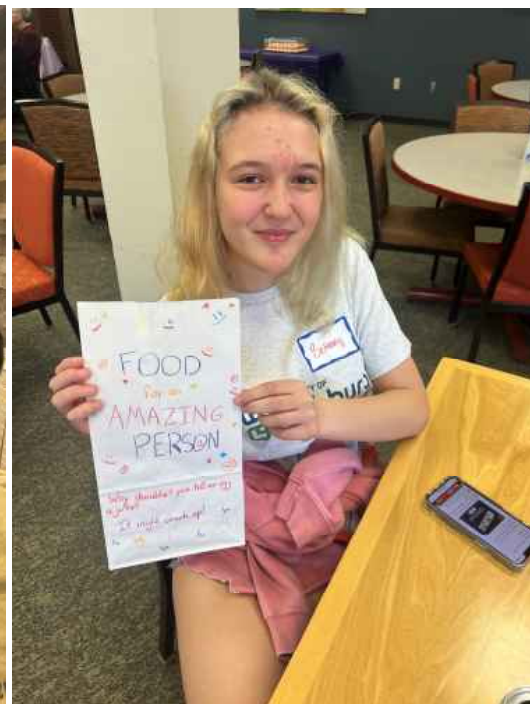 FOOD
for an
AMAZING
PERSON
Why shouldn't you tell an egg
a joke?
It might crack up!
Bethany